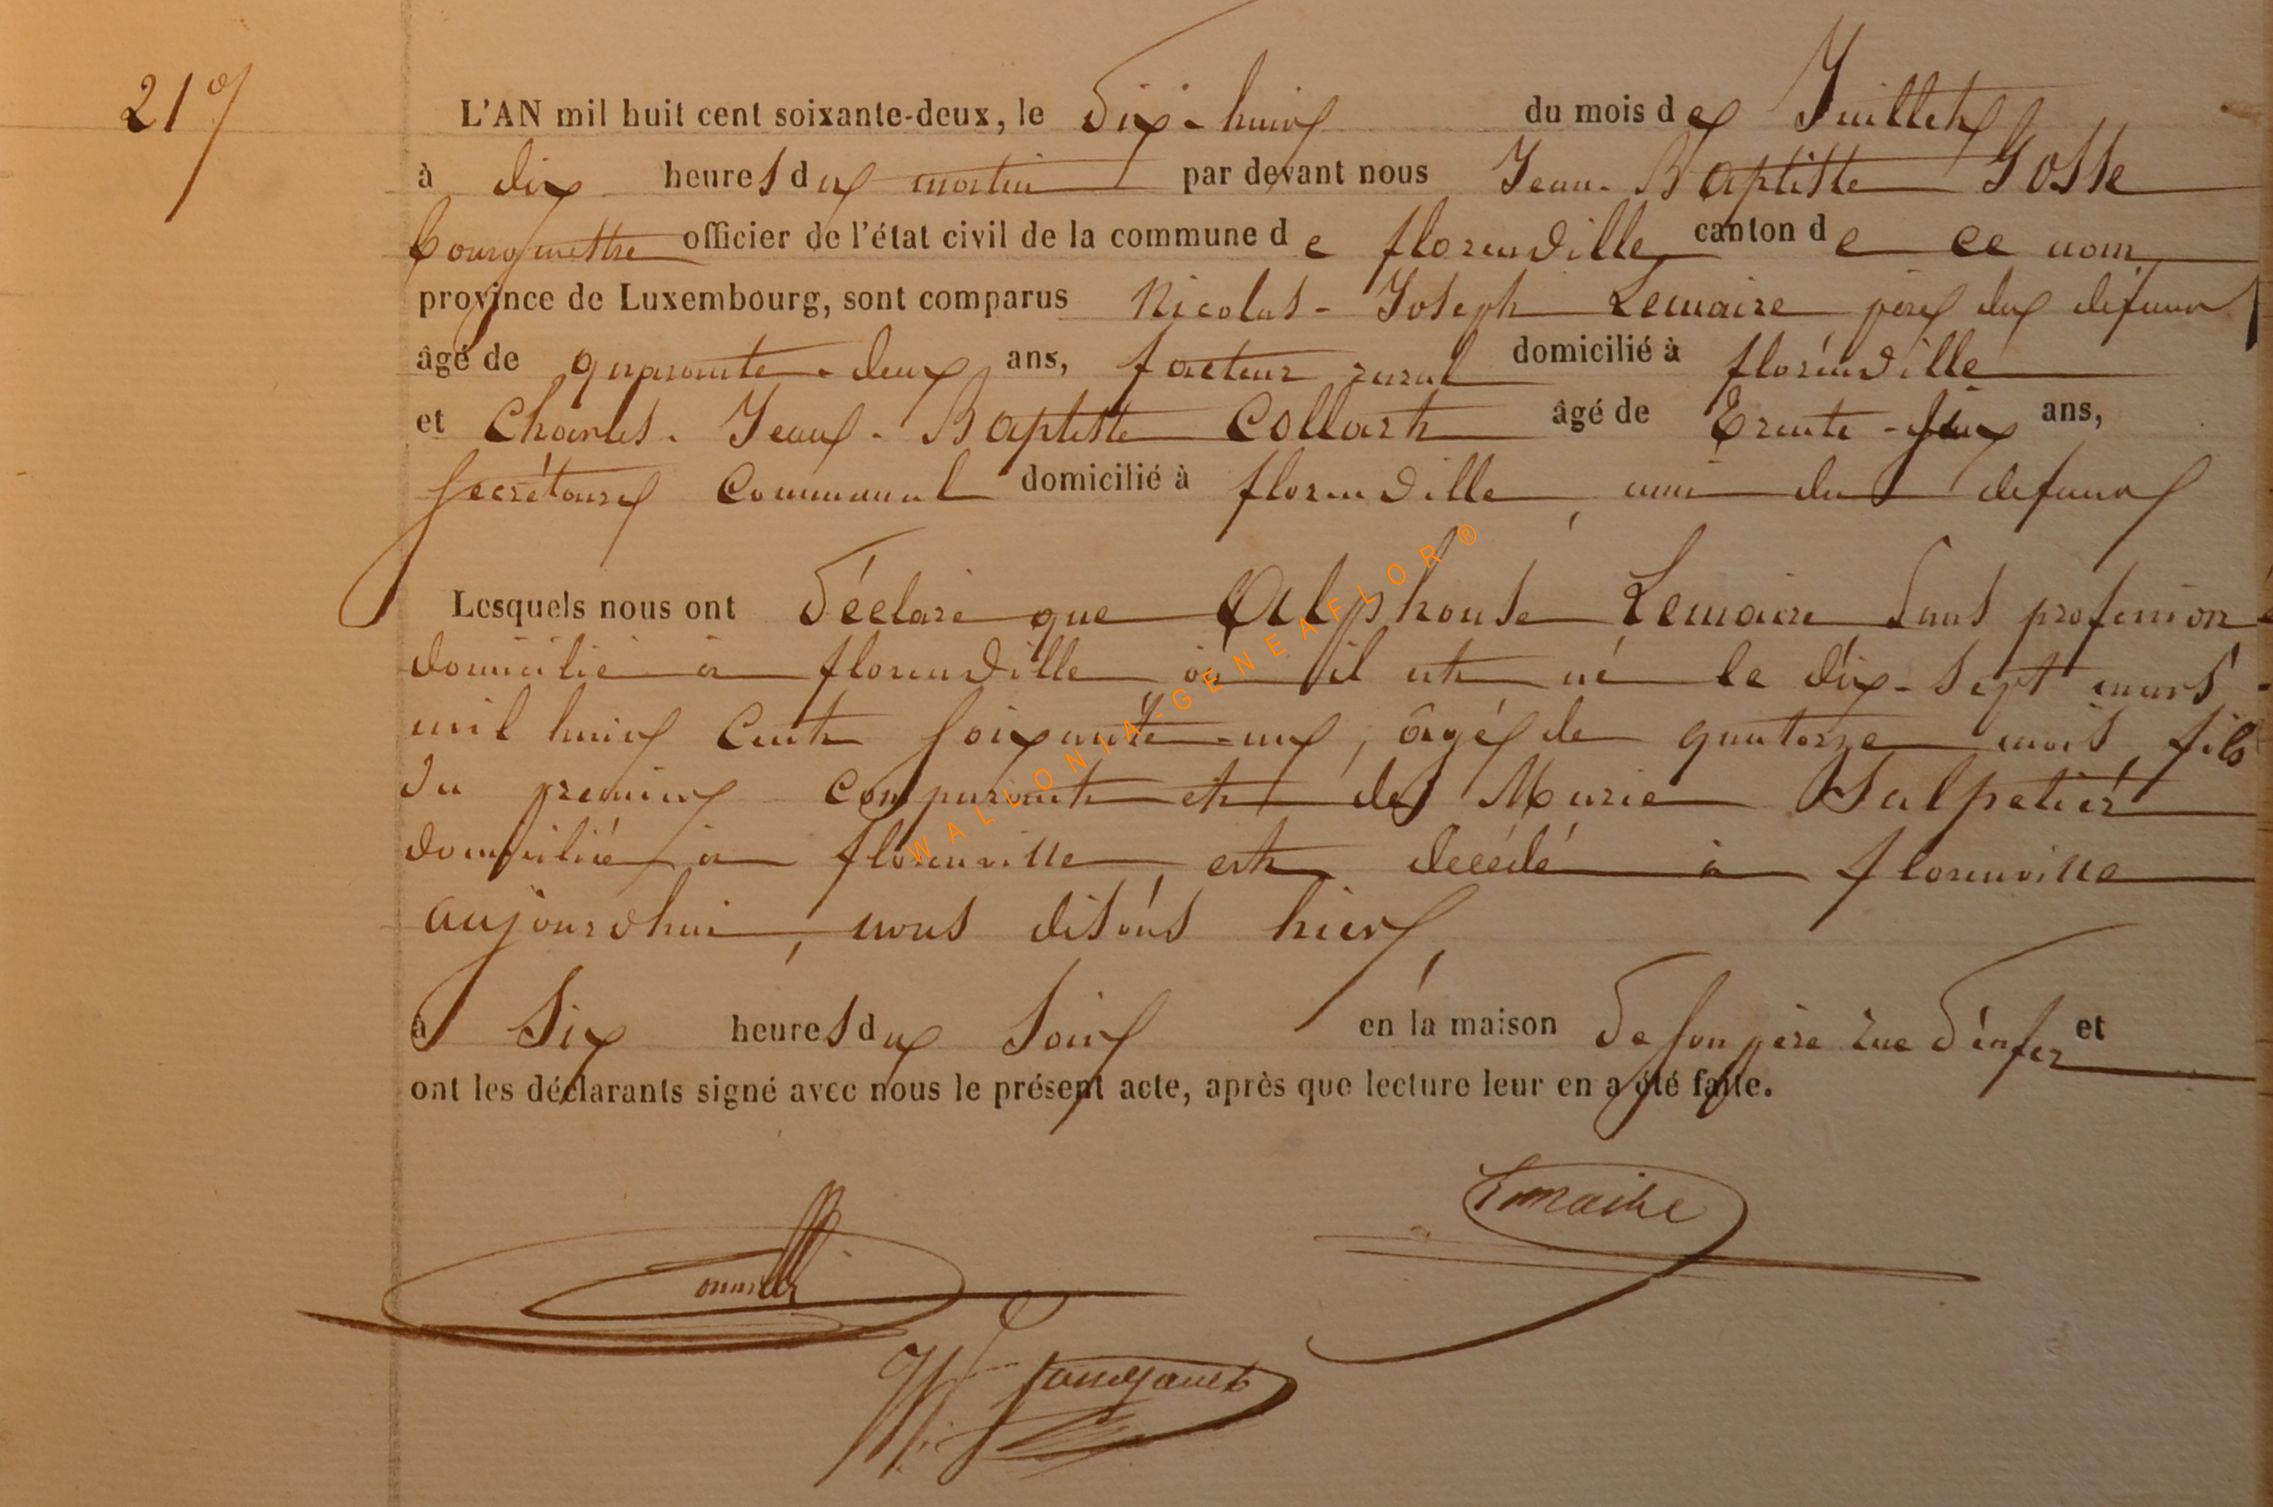 21e
L'AN mil huit cent soixante-deux, le dix-huit du mois de Juillet
à dix heures du matin par devant nous Jean-Baptiste Gosse
bourgmestre officier de l'état civil de la commune de florenville canton de ce nom
province de Luxembourg, sont comparus Nicolas-Joseph Lemaire père du défunt
âgé de quarante-deux ans, facteur rural domicilié à florenville
et Charles-Jean-Baptiste Collart âgé de Trente-deux ans,
secrétaire communal domicilié à florenville, ami du défunt
Lesquels nous ont déclaré que Alphonse Lemaire sans profession
domicilié à florenville où il est né le dix-sept mars
mil huit cent soixante-un, âgé de quatorze mois, fils
du premier comparant et de Marie Salpetier
domiciliée à florenville, est décédé à florenville
aujourdhui, nous disons hier,
à six heures du soir en la maison de son père rue d'enfer et
ont les déclarants signé avec nous le présent acte, après que lecture leur en a été faite.
Lemaire
WALLONIA-GENEAFLOR®